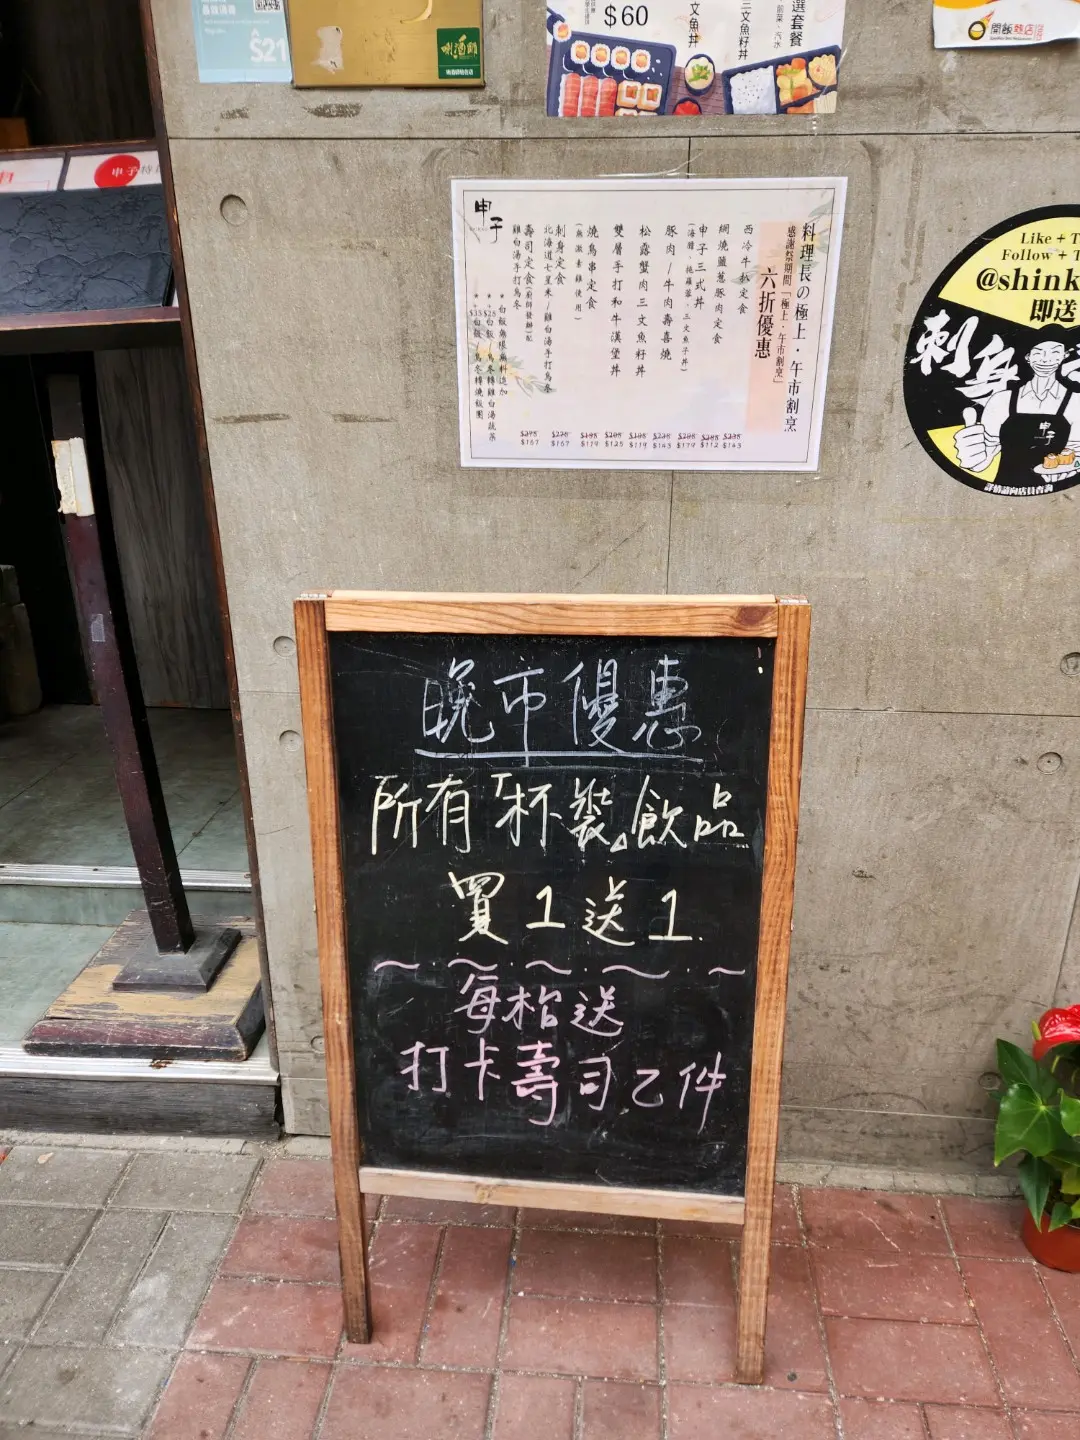 $21
$60
文魚丼
三文魚籽丼
選套餐
開飯
申子
料理長の極上．午市割烹
感謝祭期間「極上．午市割烹」
六折優惠
西冷牛扒定食
網燒蘆蔥豚肉定食
申子三式丼
豚肉/牛肉壽喜燒
松露蟹肉三文魚籽丼
雙層手打和牛漢堡丼
燒鳥串定食
刺身定食
北海道七星米/雞白湯手打烏冬
壽司定食(廚師發辦)配
雞白湯手打烏冬
$143
$112
$179
$143
$119
$125
$119
$167
$167
Like + 
Follow + 
@shink
即送
刺身
申子
詳情請向店員查詢
晚市優惠
所有「杯裝」飲品
買1送1.
～～．～．～．～
每枱送
打卡壽司乙件